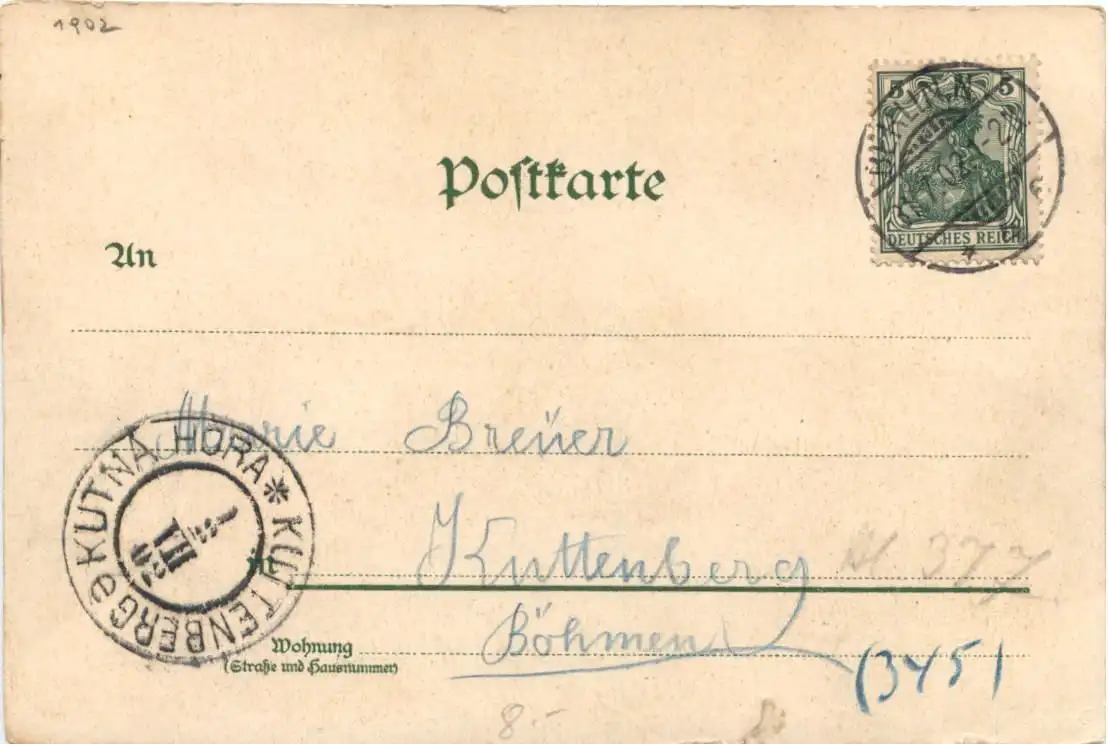 1902
5 5
DEUTSCHES REICH
BERLIN N
Postkarte
An
Marie Breuer
KUTNÁ HORA * KUTTENBERG
VII
02
in Kuttenberg
377
Wohnung
(Straße und Hausnummer)
Böhmen
(345)
8.-